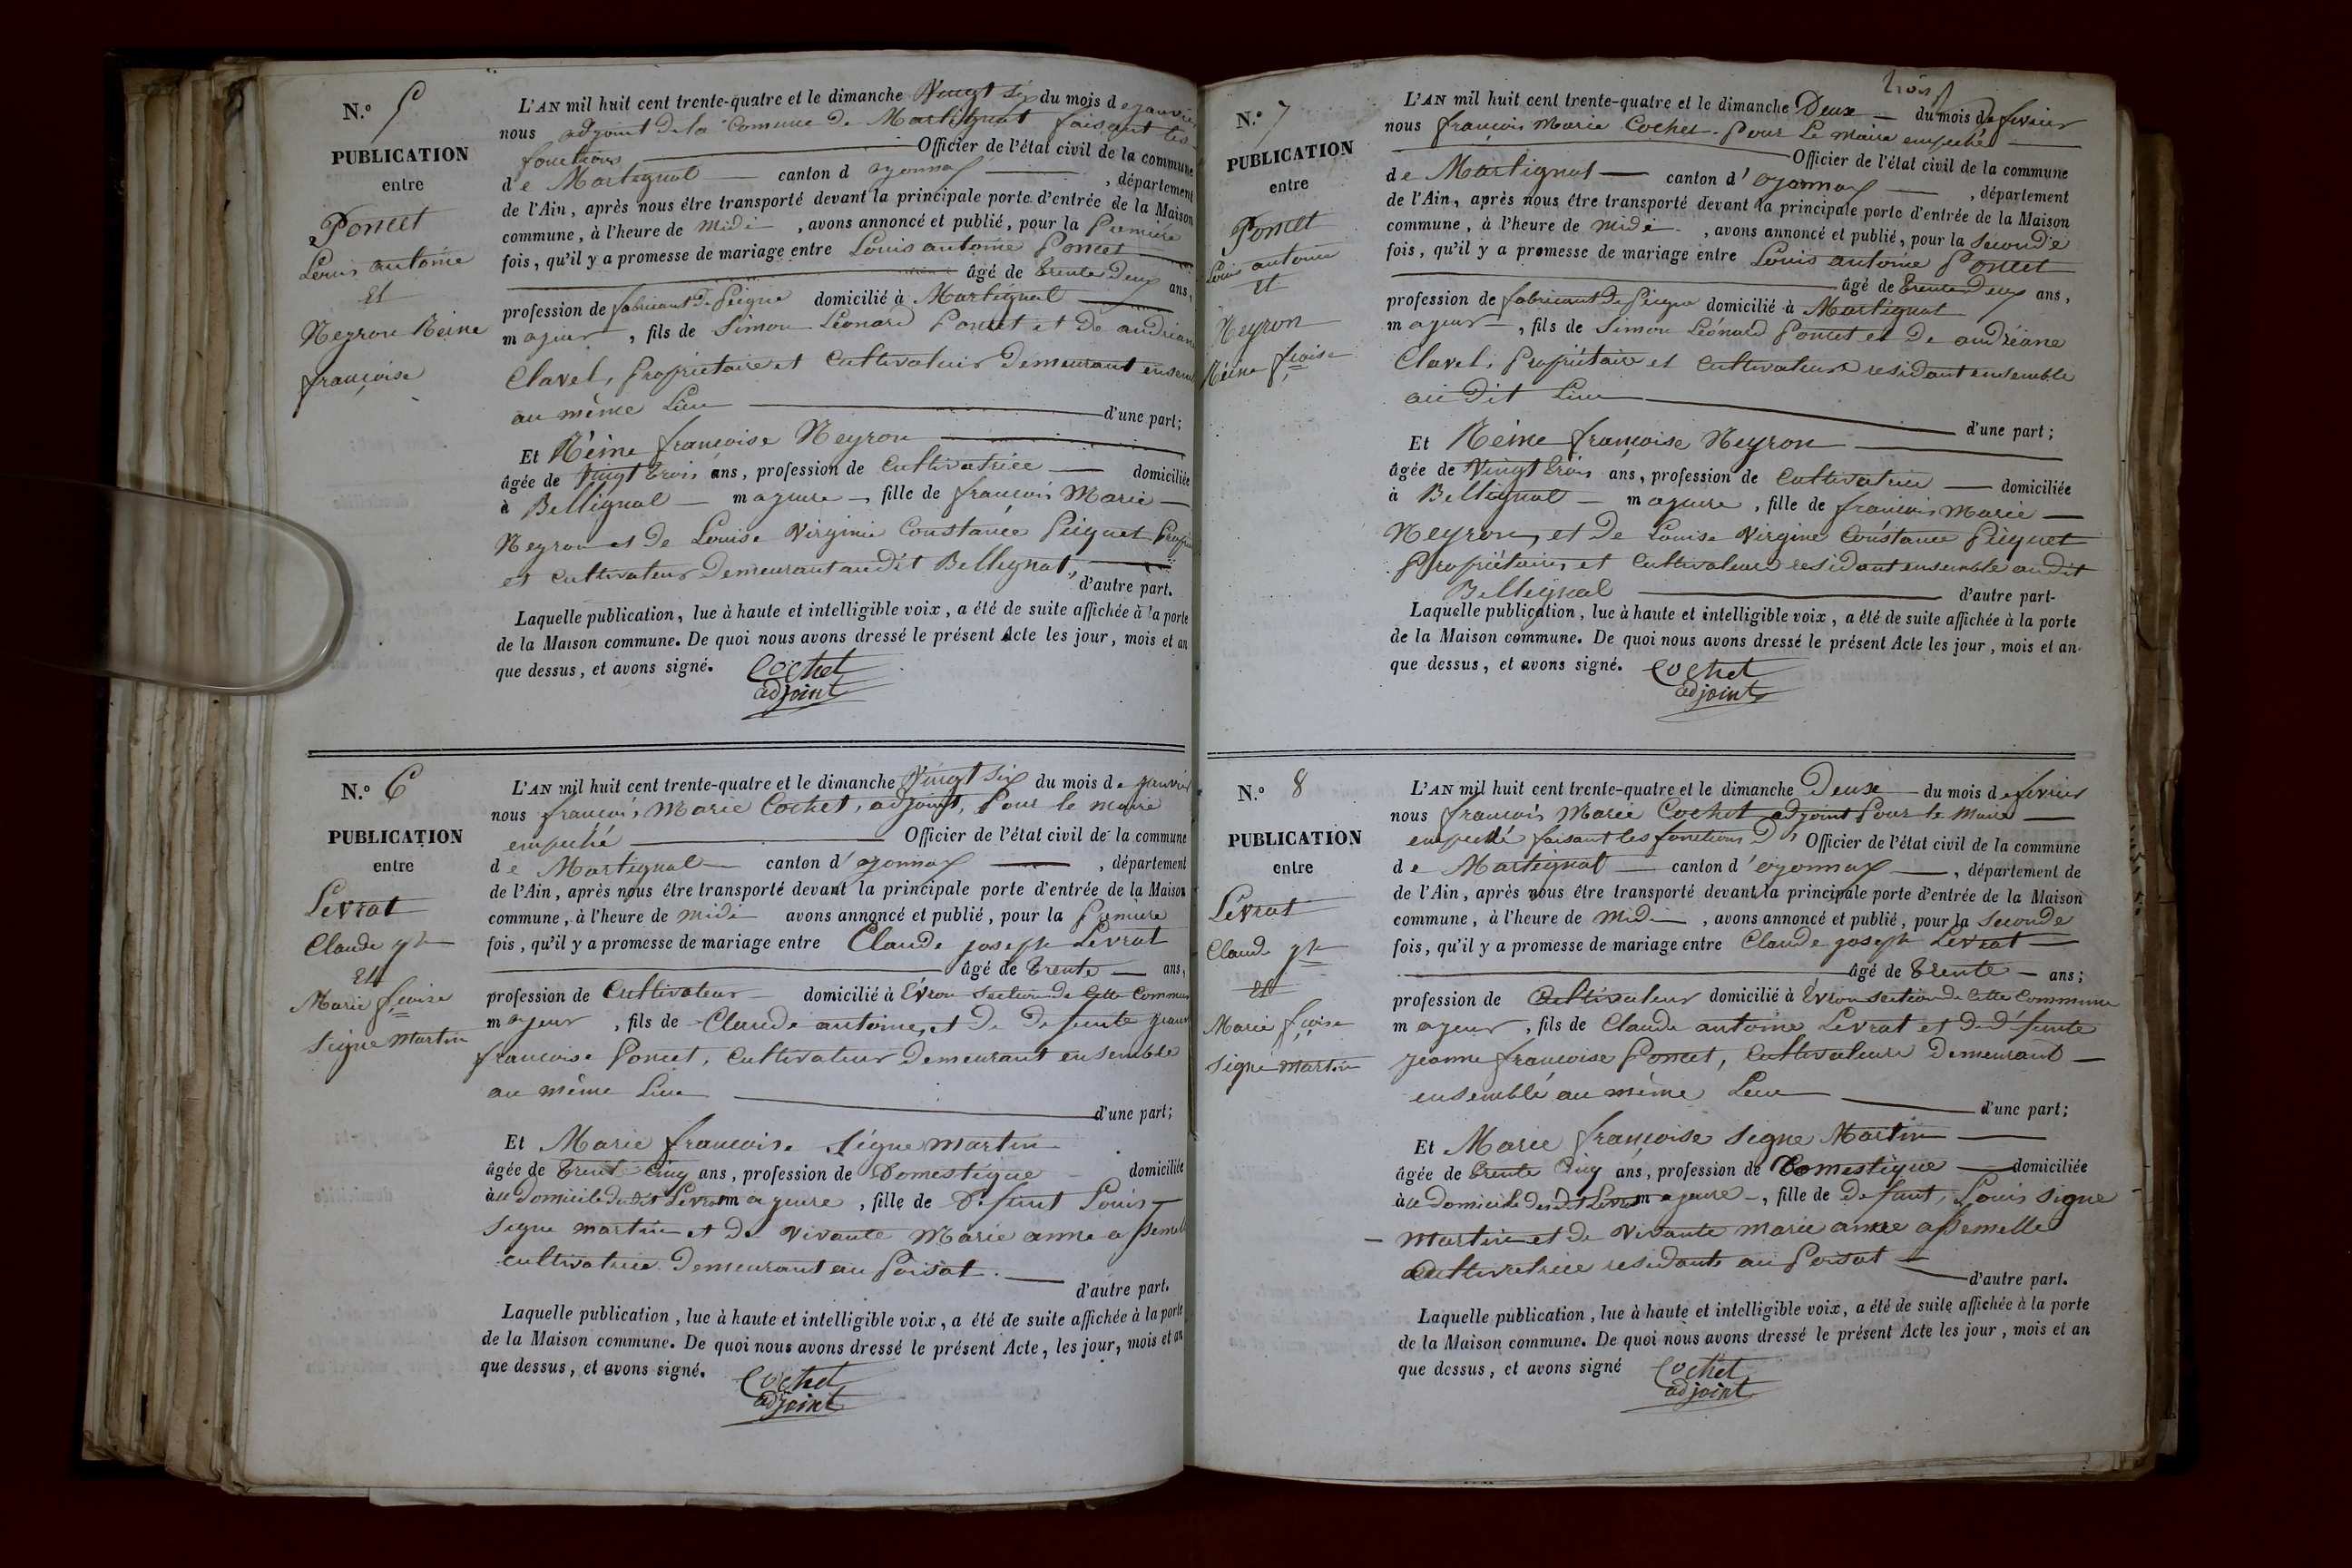 N.° 5
PUBLICATION
entre
Poncet
Louis antoine
Et
Neyron Réine
françoise
L'AN mil huit cent trente-quatre et le dimanche Vingt six du mois de janvier
nous adjoint de la Commune de Martignat faisant les
fonctions Officier de l'état civil de la commune
de Martignat canton d oyonnax , département
de l'Ain, après nous être transporté devant la principale porte d'entrée de la Maison
commune, à l'heure de midi , avons annoncé et publié, pour la Première
fois, qu'il y a promesse de mariage entre Louis antoine Poncet
âgé de trente Deux ans,
profession de fabricant de Peigne domicilié à Martignat
majeur , fils de Simon Léonard Poncet et de andréane
Clavel, Propriétaire et Cultivateur Demeurant ensem
au même Lieu d'une part;
Et Réine françoise Neyron
âgée de Vingt trois ans, profession de Cultivatrice domiciliée
à Bellignat majeure , fille de françois Marie
Neyron et de Louise Virginie Constance Piquet Propri
et cultivateur Demeurant audit Bellegnat, d'autre part.
Laquelle publication, lue à haute et intelligible voix, a été de suite affichée à la porte
de la Maison commune. De quoi nous avons dressé le présent Acte les jour, mois et an
que dessus, et avons signé. Cochet
adjoint
N.° 6
PUBLICATION
entre
Levrat
Claude jph
Et
Marie fçoise
Signe Martin
L'AN mil huit cent trente-quatre et le dimanche Vingt Six du mois de janvier
nous françois Marie Cochet, adjoint, Pour le maire
empeché Officier de l'état civil de la commune
de Martignat canton d'oyonnax , département
de l'Ain, après nous être transporté devant la principale porte d'entrée de la Maison
commune, à l'heure de midi avons annoncé et publié, pour la Première
fois, qu'il y a promesse de mariage entre Claude joseph Levrat
âgé de trente ans,
profession de Cultivateur domicilié à Évron Section de Cette Commune
majeur , fils de Claude antoine, et de Defunte jeanne
françoise Poncet, Cultivateur Demeurant ensemble
au même Lieu d'une part;
Et Marie françoise Signe Martin
âgée de trente Cinq ans, profession de Domestique domiciliée
à u Domicile dudit Levrat majeure , fille de Defunt Louis
Signe martin et de Vivante Marie anne assemelle
cultivatrice Demeurant au Poisat. d'autre part.
Laquelle publication, lue à haute et intelligible voix, a été de suite affichée à la porte
de la Maison commune. De quoi nous avons dressé le présent Acte, les jour, mois et an
que dessus, et avons signé. Cochet
adjoint
trois
N.° 7
PUBLICATION
entre
Poncet
Louis antoine
Et
Neyron
Réine fçoise
L'AN mil huit cent trente-quatre et le dimanche Deux du mois de fevrier
nous françois Marie Cochet. Pour Le Maire empeché
Officier de l'état civil de la commune
de Martignat canton d'oyonnax , département
de l'Ain, après nous être transporté devant la principale porte d'entrée de la Maison
commune, à l'heure de midi , avons annoncé et publié, pour la Seconde
fois, qu'il y a promesse de mariage entre Louis antoine Poncet
âgé de trente Deux ans,
profession de fabricant de Peigne domicilié à Martignat
majeur , fils de Simon Léonard Poncet et De andréane
Clavel, Propriétaire et Cultivateurs residant ensemble
au dit Lieu d'une part;
Et Réine françoise Neyron
âgée de Vingt trois ans, profession de Cultivatrice domiciliée
à Bellignat majeure , fille de françois Marie
Neyron, et de Louise Virgine Constance Piquet
Propriétaires et Cultivateurs residant ensemble audit
Bellegnat d'autre part.
Laquelle publication, lue à haute et intelligible voix, a été de suite affichée à la porte
de la Maison commune. De quoi nous avons dressé le présent Acte les jour, mois et an
que dessus, et avons signé. Cochet
adjoint
N.° 8
PUBLICATION
entre
Levrat
Claude jph
et
Marie fçoise
Signe Martin
L'AN mil huit cent trente-quatre et le dimanche Deux du mois de fevrier
nous françois Marie Cochet adjoint Pour le Maire
empeché faisant les fonctions D' Officier de l'état civil de la commune
de Martignat canton d'oyonnax , département de
de l'Ain, après nous être transporté devant la principale porte d'entrée de la Maison
commune, à l'heure de Midi , avons annoncé et publié, pour la Seconde
fois, qu'il y a promesse de mariage entre Claude joseph Levrat
âgé de trente ans;
profession de Cultivateur domicilié à Évron section de Cette Commune
majeur , fils de Claude antoine Levrat et de Defunte
jeanne françoise Poncet, Cultivateurs Demeurant
ensemble au même Lieu d'une part;
Et Marie françoise Signe Martin
âgée de trente Cinq ans, profession de Domestique domiciliée
à u domicile dudit Levrat majeure , fille de Defunt, Louis Signe
Martin et de Vivante marie anne assemelle
Cultivatrice residante au Poisat d'autre part.
Laquelle publication, lue à haute et intelligible voix, a été de suite affichée à la porte
de la Maison commune. De quoi nous avons dressé le présent Acte les jour, mois et an
que dessus, et avons signé Cochet
adjoint